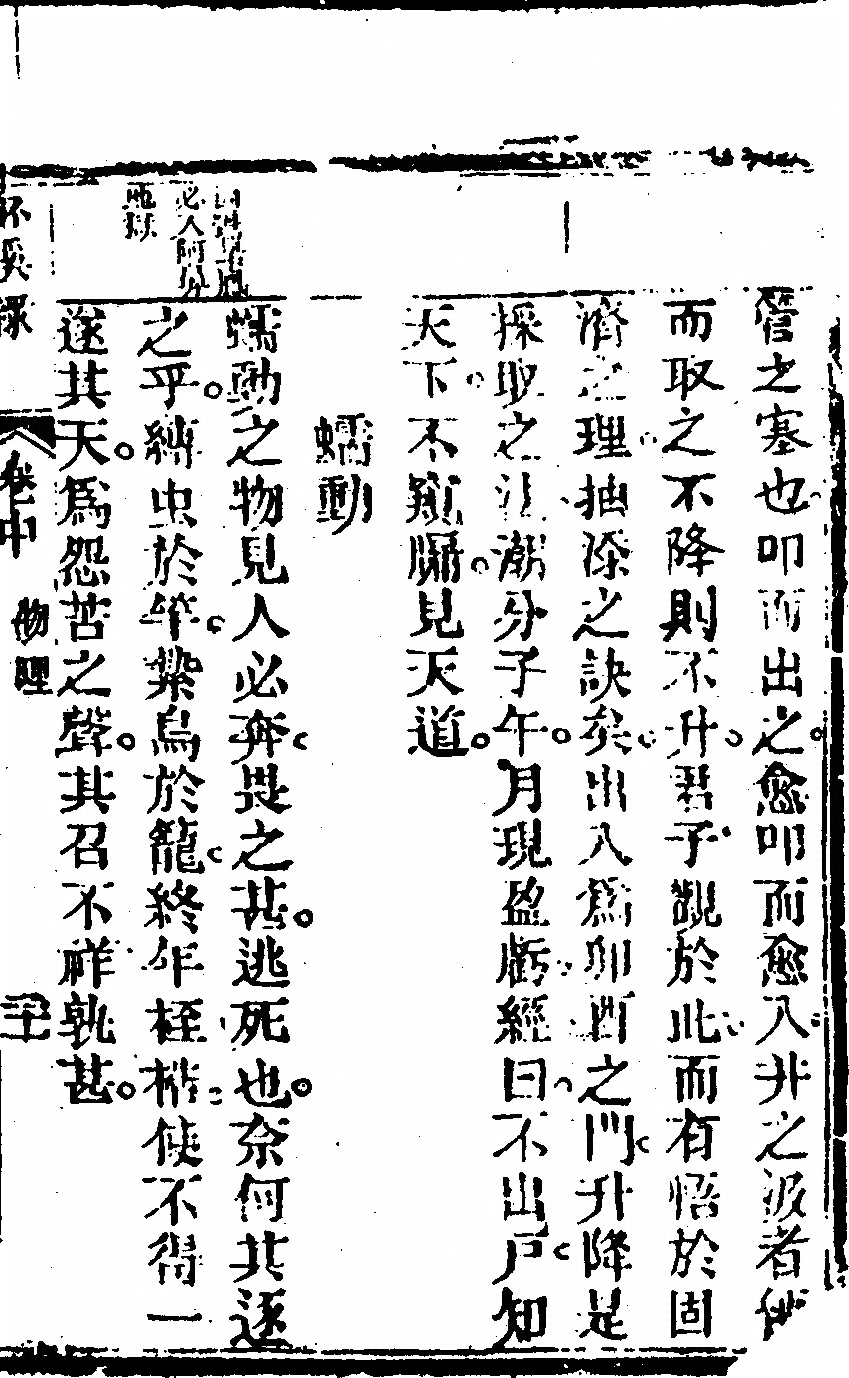 管之塞也叩而出之愈叩而愈入井之汲者俯
而取之不降則不升君子觀於此而有悟於固
濟之理抽添之訣矣出入爲卯酉之門升降是
採取之法潮分子午月現盈虧經曰不出戸知
天下不窺牖見天道
蠕動
蠕動之物見人必奔畏之甚逃死也奈何其逐
之乎縛虫於竿縶鳥於籠終年桎梏使不得一
遂其天爲怨苦之聲其召不祥孰甚
必入阿鼻
地獄
卷中
物理